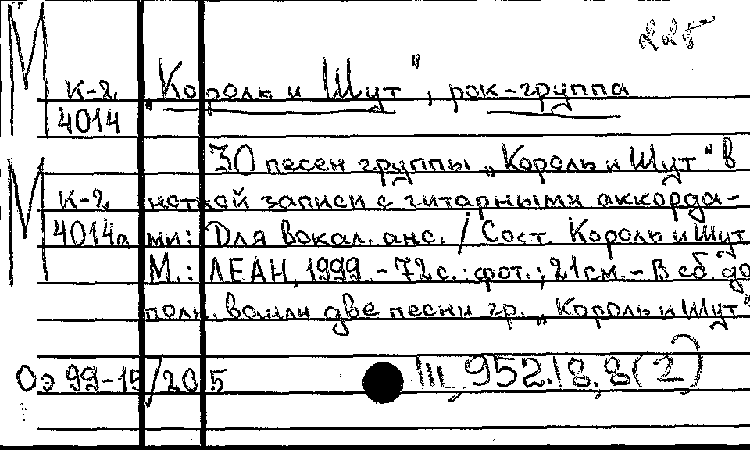 225
М К-2 „Король и Шут", рок-группа
4014
30 песен группы „Король и Шут" в
М К-2 нотной записи с гитарными аккорда-
4014а ми: Для вокал. анс. / Сост. Король и Шут
М.: ЛЕАН, 1999. - 72с.: фот.; 21см. - В сб. до
полн. вошли две песни гр. „Король и Шут"
Оэ 99-15/205 III, 952.18,8(2)